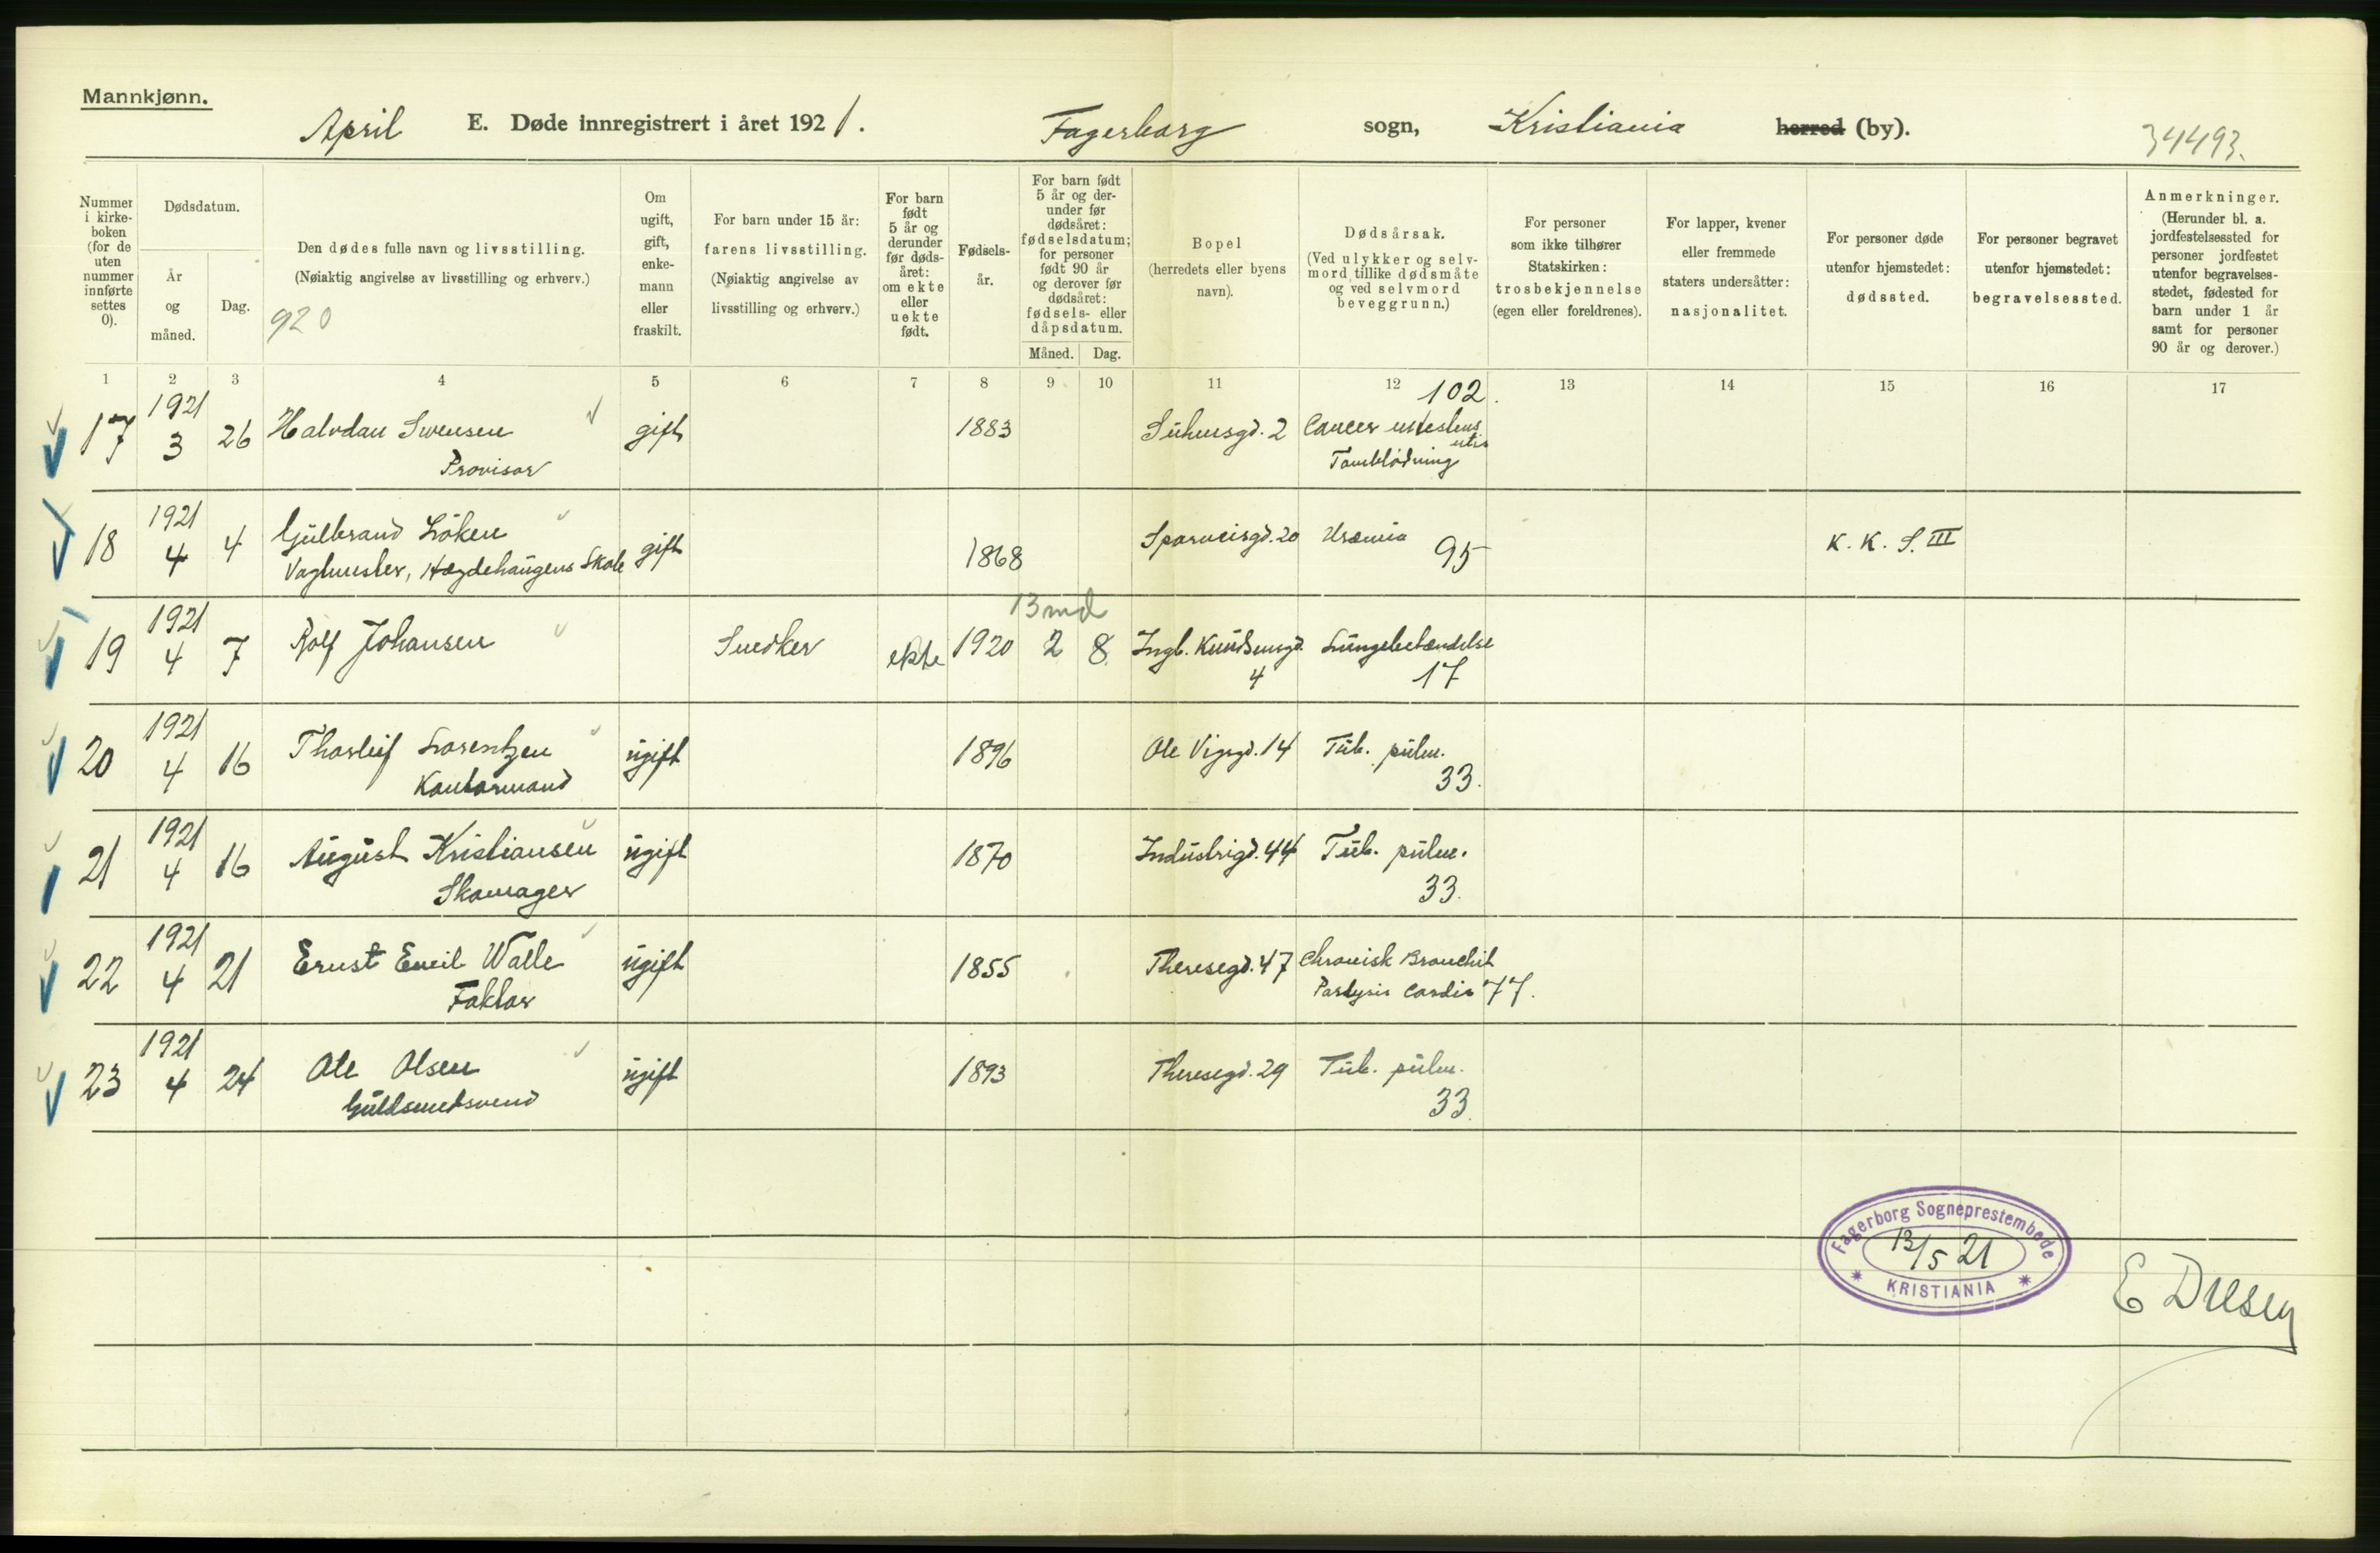 Mannkjønn.
April E. Døde innregistrert i året 1921. Fagerborg sogn, Kristiania herred (by). 34493.
Nummer i kirkeboken (for de uten nummer innførte settes 0).
Dødsdatum.
År og måned.
Dag.
Den dødes fulle navn og livsstilling.
(Nøiaktig angivelse av livsstilling og erhverv.)
920
Om ugift, gift, enkemann eller fraskilt.
For barn under 15 år: farens livsstilling.
(Nøiaktig angivelse av livsstilling og erhverv.)
For barn født 5 år og derunder før dødsåret: om ekte eller uekte født.
Fødselsår.
For barn født 5 år og derunder før dødsåret: fødselsdatum; for personer født 90 år og derover før dødsåret: fødsels- eller dåpsdatum.
Måned. Dag.
Bopel
(herredets eller byens navn).
Dødsårsak.
(Ved ulykker og selvmord tillike dødsmåte og ved selvmord beveggrunn.)
For personer som ikke tilhører Statskirken: trosbekjennelse (egen eller foreldrenes).
For lapper, kvener eller fremmede staters undersåtter: nasjonalitet.
For personer døde utenfor hjemstedet: dødssted.
For personer begravet utenfor hjemstedet: begravelsessted.
Anmerkninger.
(Herunder bl. a. jordfestelsessted for personer jordfestet utenfor begravelsesstedet, fødested for barn under 1 år samt for personer 90 år og derover.)
1 2 3 4 5 6 7 8 9 10 11 12 13 14 15 16 17
17 1921 3 26 Halvdan Svensen gift 1883 Suhmsgd. 2 Cancer 102.
Provisor
18 1921 4 4 Gulbrand Löken gift 1868 Sporveisgd. 20 Uræmia 95 K. K. S. III
Vagtmester, Hægdehaugens Skole
13 md
19 1921 4 7 Rolf Johansen Snedker ekte 1920 2 8 Ingb. Knudsensgd. 4 Lungebetændelse 17
20 1921 4 16 Thorleif Lorentzen ugift 1896 Ole Vigsgd. 14 Tub. pulm. 33.
Kontormand
21 1921 4 16 August Kristiansen ugift 1870 Industrigd. 44 Tub. pulm. 33.
Skomager
22 1921 4 21 Ernst Emil Walle ugift 1855 Theresegd. 47 Chronisk Bronchit
Faktor Paralysis Cordis 77.
23 1921 4 24 Ole Olsen ugift 1893 Theresegd. 29 Tub. pulm. 33.
Guldsmedsvend
Fagerborg Sogneprestembede
13/5 21
KRISTIANIA